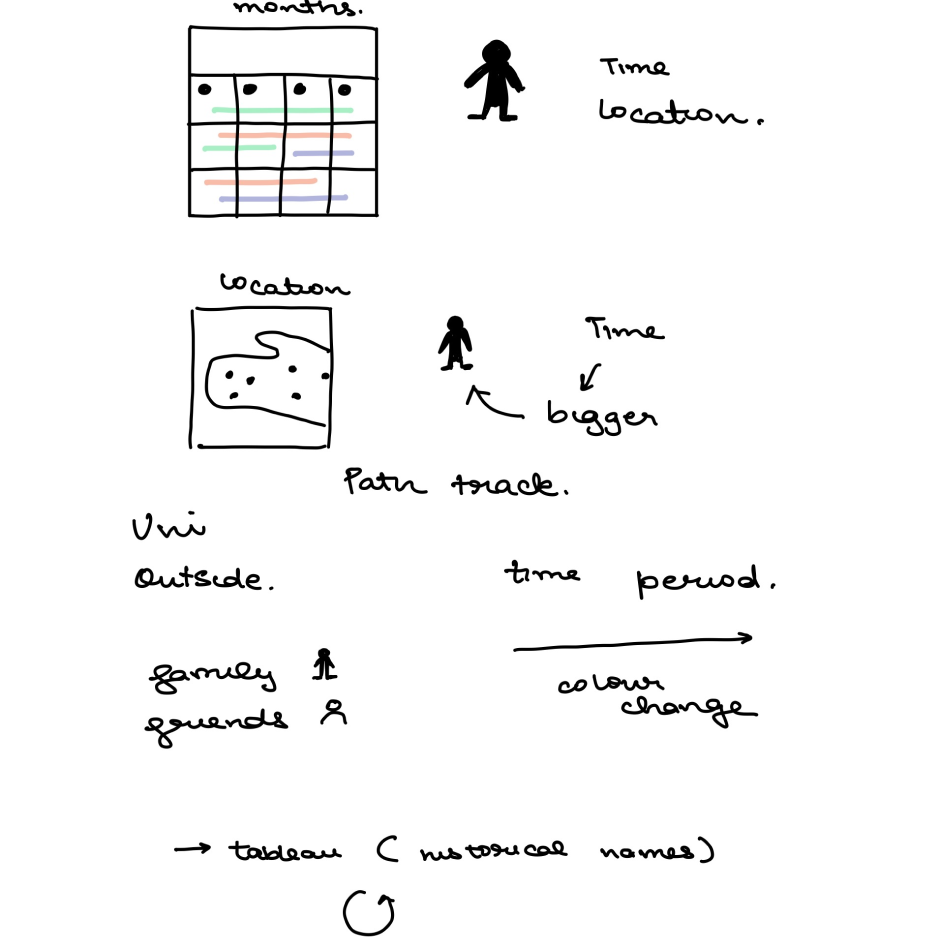 months.
Time
Location.
Location
Time
bigger
Path track.
Uni
Outside.
time period.
family
friends
colour
change
→ tableau (historical names)